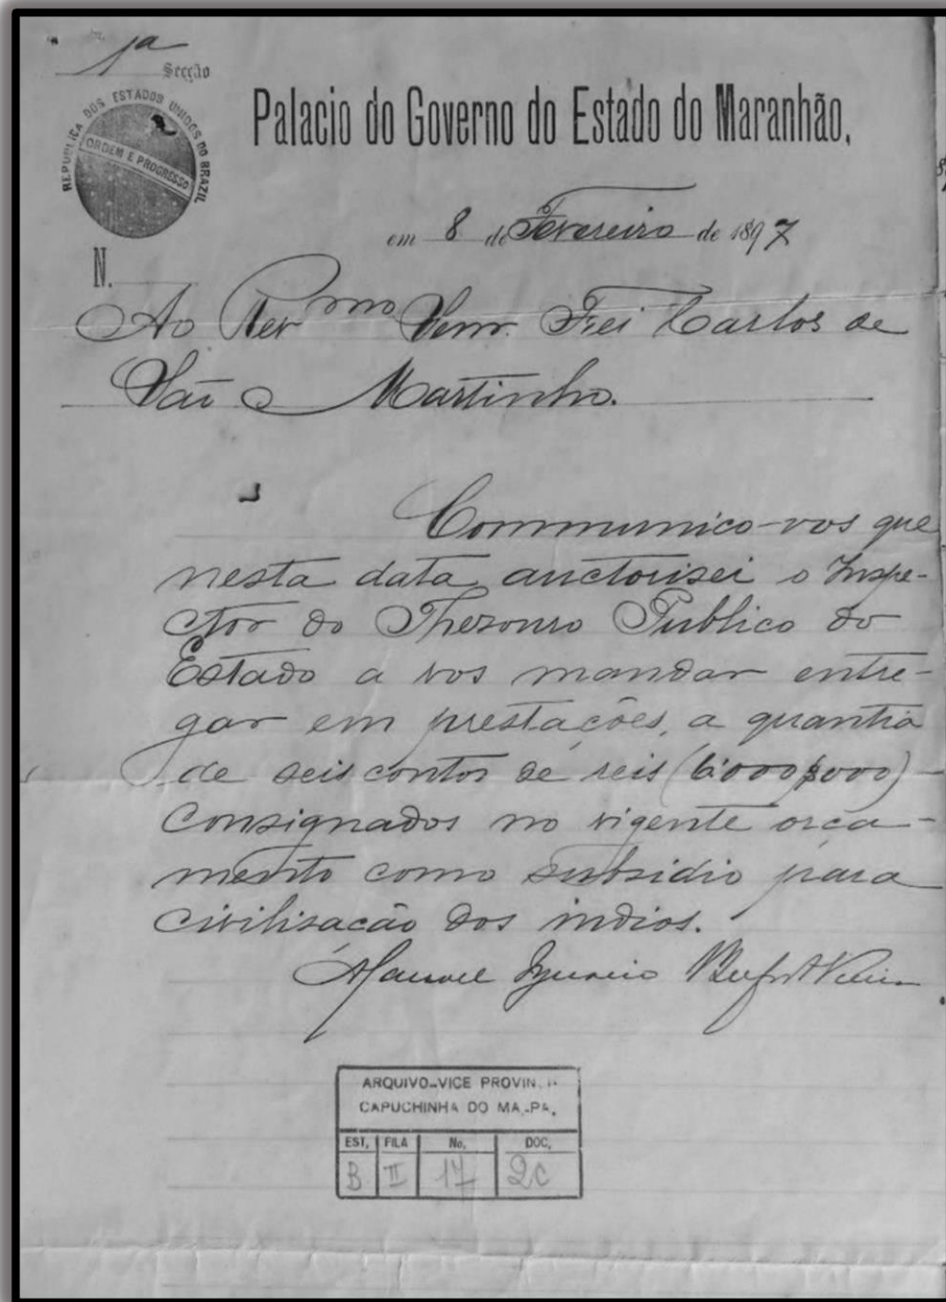 1ª Secção
REPUBLICA DOS ESTADOS UNIDOS DO BRAZIL
ORDEM E PROGRESSO
Palacio do Governo do Estado do Maranhão,
em 8 de Fevereiro de 1897
N.
Ao Revmo Senr. Frei Carlos de
São Martinho.
Communico-vos que
nesta data auctorisei o Inspe-
ctor do Thezouro Publico do
Estado a vos mandar entre-
gar em prestações, a quantia
de seis contos de reis (6:000$000)
consignados no vigente orça-
mento como subsidio para
civilisação dos indios.
Manoel Ignacio Belfort Vieira
ARQUIVO-VICE PROVIN
CAPUCHINHA DO MA.-PA.
EST. FILA No. DOC.
B II 17 2C